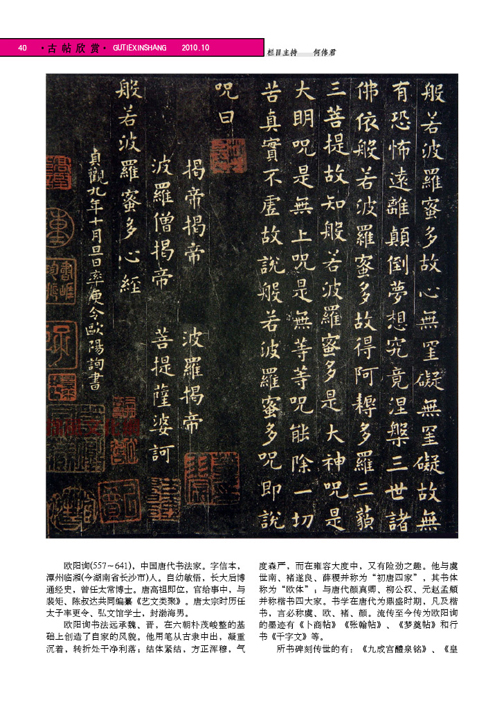 40 ·古帖欣赏· GUTIEXINSHANG 2010.10
栏目主持——何伟君
般若波羅蜜多故心無罣礙無罣礙故無
有恐怖遠離顛倒夢想究竟涅槃三世諸
佛依般若波羅蜜多故得阿耨多羅三藐
三菩提故知般若波羅蜜多是大神呪是
大明呪是無上呪是無等等呪能除一切
苦真實不虛故說般若波羅蜜多呪即說
呪曰
揭帝揭帝 波羅揭帝
波羅僧揭帝 菩提薩婆訶
般若波羅蜜多心經
貞觀九年十月旦日率更令歐陽詢書
欧阳询(557～641)，中国唐代书法家。字信本，
潭州临湘(今湖南省长沙市)人。自幼敏悟，长大后博
通经史，曾任太常博士。唐高祖即位，官给事中，与
裴矩、陈叔达共同编纂《艺文类聚》。唐太宗时历任
太子率更令、弘文馆学士，封渤海男。
欧阳询书法远承魏、晋，在六朝朴茂峻整的基
础上创造了自家的风貌。他用笔从古隶中出，凝重
沉着，转折处干净利落；结体紧结，方正浑穆，气
度森严，而在雍容大度中，又有险劲之趣。他与虞
世南、褚遂良、薛稷并称为“初唐四家”，其书体
称为“欧体”；与唐代颜真卿、柳公权、元赵孟頫
并称楷书四大家。书学在唐代为鼎盛时期，凡及楷
书，言必称虞、欧、褚、颜。流传至今传为欧阳询
的墨迹有《卜商帖》《张翰帖》、《梦奠帖》和行
书《千字文》等。
所书碑刻传世的有：《九成宫醴泉铭》、《皇